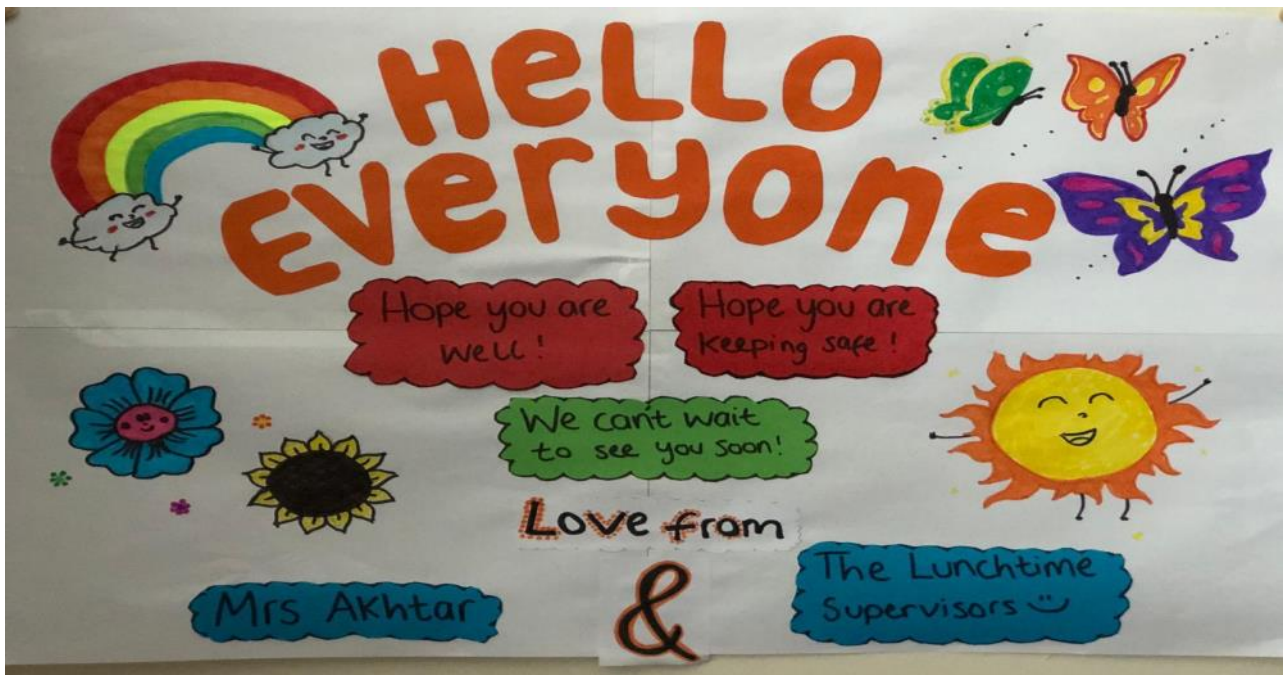 Hello
Everyone
Hope you are
well!
Hope you are
keeping safe!
We can't wait
to see you soon!
Love from
Mrs Akhtar
&
The Lunchtime
Supervisors